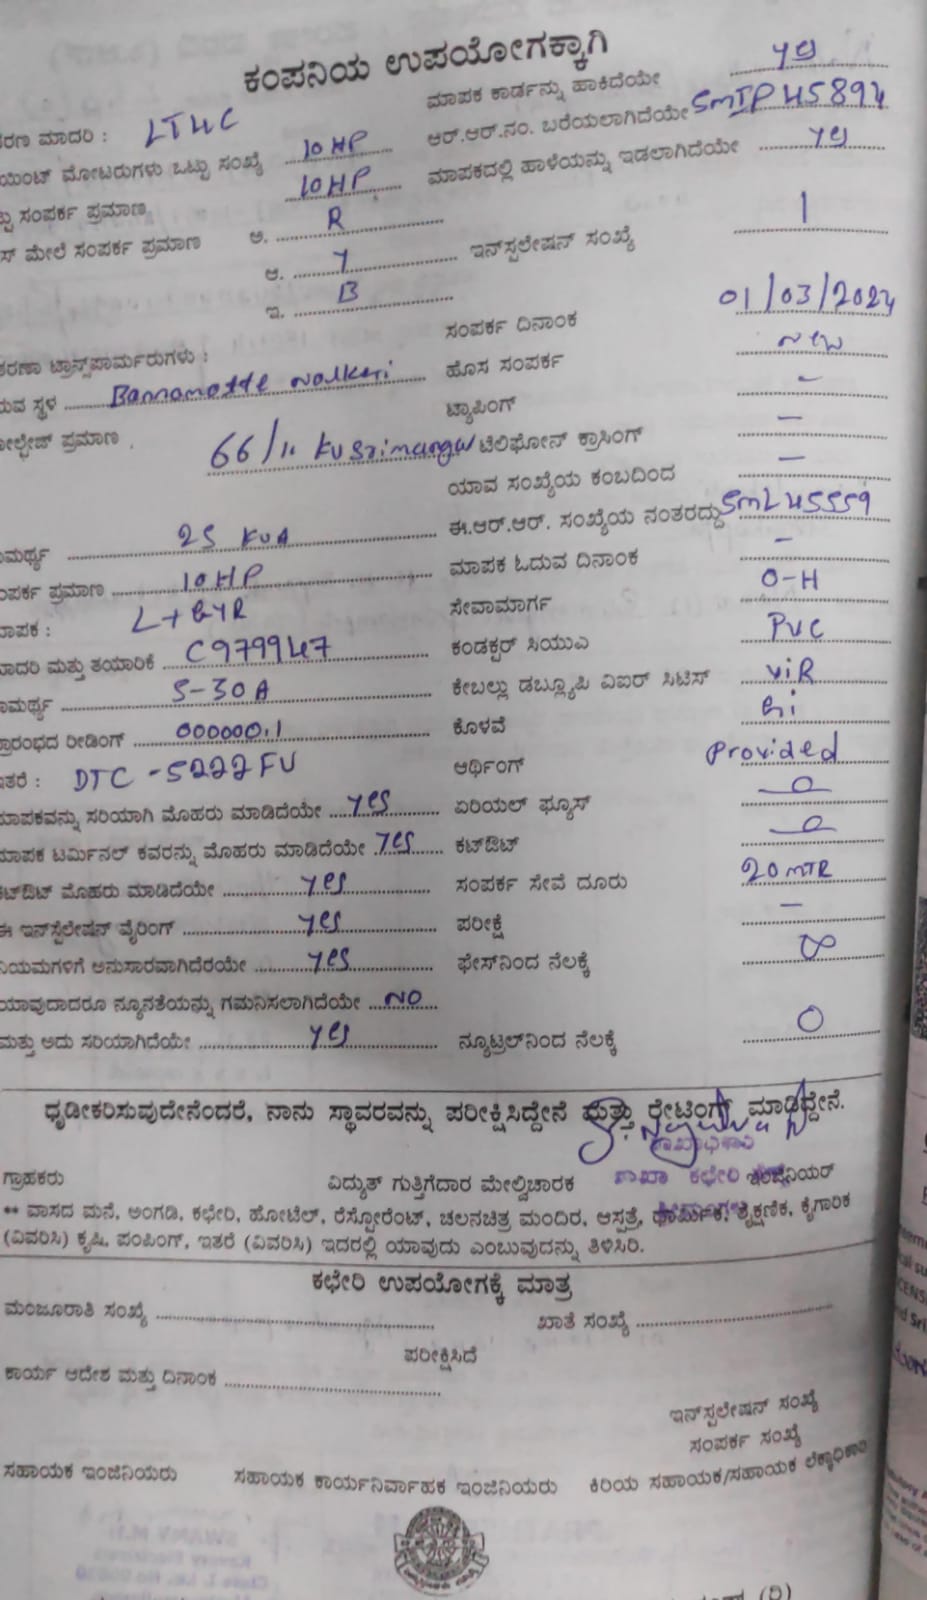 ಕಂಪನಿಯ ಉಪಯೋಗಕ್ಕಾಗಿ
ಮಾಪಕ ಕಾರ್ಡನ್ನು ಹಾಕಿದೆಯೇ yes
ಮಾದರಿ : LT4C ಆರ್.ಆರ್.ನಂ. ಬರೆಯಲಾಗಿದೆಯೇ SMTP45894
ಮೋಟರುಗಳು ಒಟ್ಟು ಸಂಖ್ಯೆ 10 HP ಮಾಪಕದಲ್ಲಿ ಹಾಳೆಯನ್ನು ಇಡಲಾಗಿದೆಯೇ yes
ಸಂಪರ್ಕ ಪ್ರಮಾಣ 10 HP
ಮೇಲೆ ಸಂಪರ್ಕ ಪ್ರಮಾಣ ಅ. R ಇನ್‌ಸ್ಟಲೇಷನ್ ಸಂಖ್ಯೆ 1
ಆ. Y
ಇ. B ಸಂಪರ್ಕ ದಿನಾಂಕ 01/03/2024
ಟ್ರಾನ್ಸ್‌ಫಾರ್ಮರುಗಳು : ಹೊಸ ಸಂಪರ್ಕ New
ಸ್ಥಳ Bannamotte Nalkeri ಟ್ಯಾಪಿಂಗ್ -
ಪ್ರಮಾಣ 66/11 KV Srimangal ಟೆಲಿಫೋನ್ ಕ್ರಾಸಿಂಗ್ -
ಯಾವ ಸಂಖ್ಯೆಯ ಕಂಬದಿಂದ -
25 KVA ಈ.ಆರ್.ಆರ್. ಸಂಖ್ಯೆಯ ನಂತರದ್ದು SML45559
ಪ್ರಮಾಣ 10 HP ಮಾಪಕ ಓದುವ ದಿನಾಂಕ -
L+GYR ಸೇವಾಮಾರ್ಗ O-H
ಮತ್ತು ತಯಾರಿಕೆ C979947 ಕಂಡಕ್ಟರ್ ಸಿಯುಎ PVC
5-30A ಕೇಬಲ್ಲು ಡಬ್ಲ್ಯೂಪಿ ವಿಐರ್ ಸಿಟಿಸ್ ViR
ರೀಡಿಂಗ್ 000000.1 ಕೊಳವೆ Gi
DTC -5222FV ಆರ್ಥಿಂಗ್ Provided
ಸರಿಯಾಗಿ ಮೊಹರು ಮಾಡಿದೆಯೇ yes ಏರಿಯಲ್ ಫ್ಯೂಸ್
ಟರ್ಮಿನಲ್ ಕವರನ್ನು ಮೊಹರು ಮಾಡಿದೆಯೇ yes ಕಟ್‌ಔಟ್
ಮೊಹರು ಮಾಡಿದೆಯೇ yes ಸಂಪರ್ಕ ಸೇವೆ ದೂರು 20 MTR
ಈ ಇನ್‌ಸ್ಟಲೇಷನ್ ವೈರಿಂಗ್ yes ಪರೀಕ್ಷೆ -
ನಿಯಮಗಳಿಗೆ ಅನುಸಾರವಾಗಿದೆರಯೇ yes ಫೇಸ್‌ನಿಂದ ನೆಲಕ್ಕೆ ∞
ಯಾವುದಾದರೂ ನ್ಯೂನತೆಯನ್ನು ಗಮನಿಸಲಾಗಿದೆಯೇ NO
ಮತ್ತು ಅದು ಸರಿಯಾಗಿದೆಯೇ yes ನ್ಯೂಟ್ರಲ್‌ನಿಂದ ನೆಲಕ್ಕೆ O
ಧೃಡೀಕರಿಸುವುದೇನೆಂದರೆ, ನಾನು ಸ್ಥಾವರವನ್ನು ಪರೀಕ್ಷಿಸಿದ್ದೇನೆ ಮತ್ತು ರೇಟಿಂಗ್ ಮಾಡಿದ್ದೇನೆ.
ಶಾಖಾಧಿಕಾರಿ
ಗ್ರಾಹಕರು ವಿದ್ಯುತ್ ಗುತ್ತಿಗೆದಾರ ಮೇಲ್ವಿಚಾರಕ ಶಾಖಾ ಕಛೇರಿ ಇಂಜಿನಿಯರ್
** ವಾಸದ ಮನೆ, ಅಂಗಡಿ, ಕಛೇರಿ, ಹೋಟೆಲ್, ರೆಸ್ಟೋರೆಂಟ್, ಚಲನಚಿತ್ರ ಮಂದಿರ, ಆಸ್ಪತ್ರೆ, ಧಾರ್ಮಿಕ, ಶೈಕ್ಷಣಿಕ, ಕೈಗಾರಿಕ
(ವಿವರಿಸಿ) ಕೃಷಿ, ಪಂಪಿಂಗ್, ಇತರೆ (ವಿವರಿಸಿ) ಇದರಲ್ಲಿ ಯಾವುದು ಎಂಬುವುದನ್ನು ತಿಳಿಸಿರಿ.
ಕಛೇರಿ ಉಪಯೋಗಕ್ಕೆ ಮಾತ್ರ
ಮಂಜೂರಾತಿ ಸಂಖ್ಯೆ ಖಾತೆ ಸಂಖ್ಯೆ
ಪರೀಕ್ಷಿಸಿದೆ
ಕಾರ್ಯ ಆದೇಶ ಮತ್ತು ದಿನಾಂಕ
ಇನ್‌ಸ್ಟಲೇಷನ್ ಸಂಖ್ಯೆ
ಸಂಪರ್ಕ ಸಂಖ್ಯೆ
ಸಹಾಯಕ ಇಂಜಿನಿಯರು ಸಹಾಯಕ ಕಾರ್ಯನಿರ್ವಾಹಕ ಇಂಜಿನಿಯರು ಕಿರಿಯ ಸಹಾಯಕ/ಸಹಾಯಕ ಲೆಕ್ಕಾಧಿಕಾರಿ